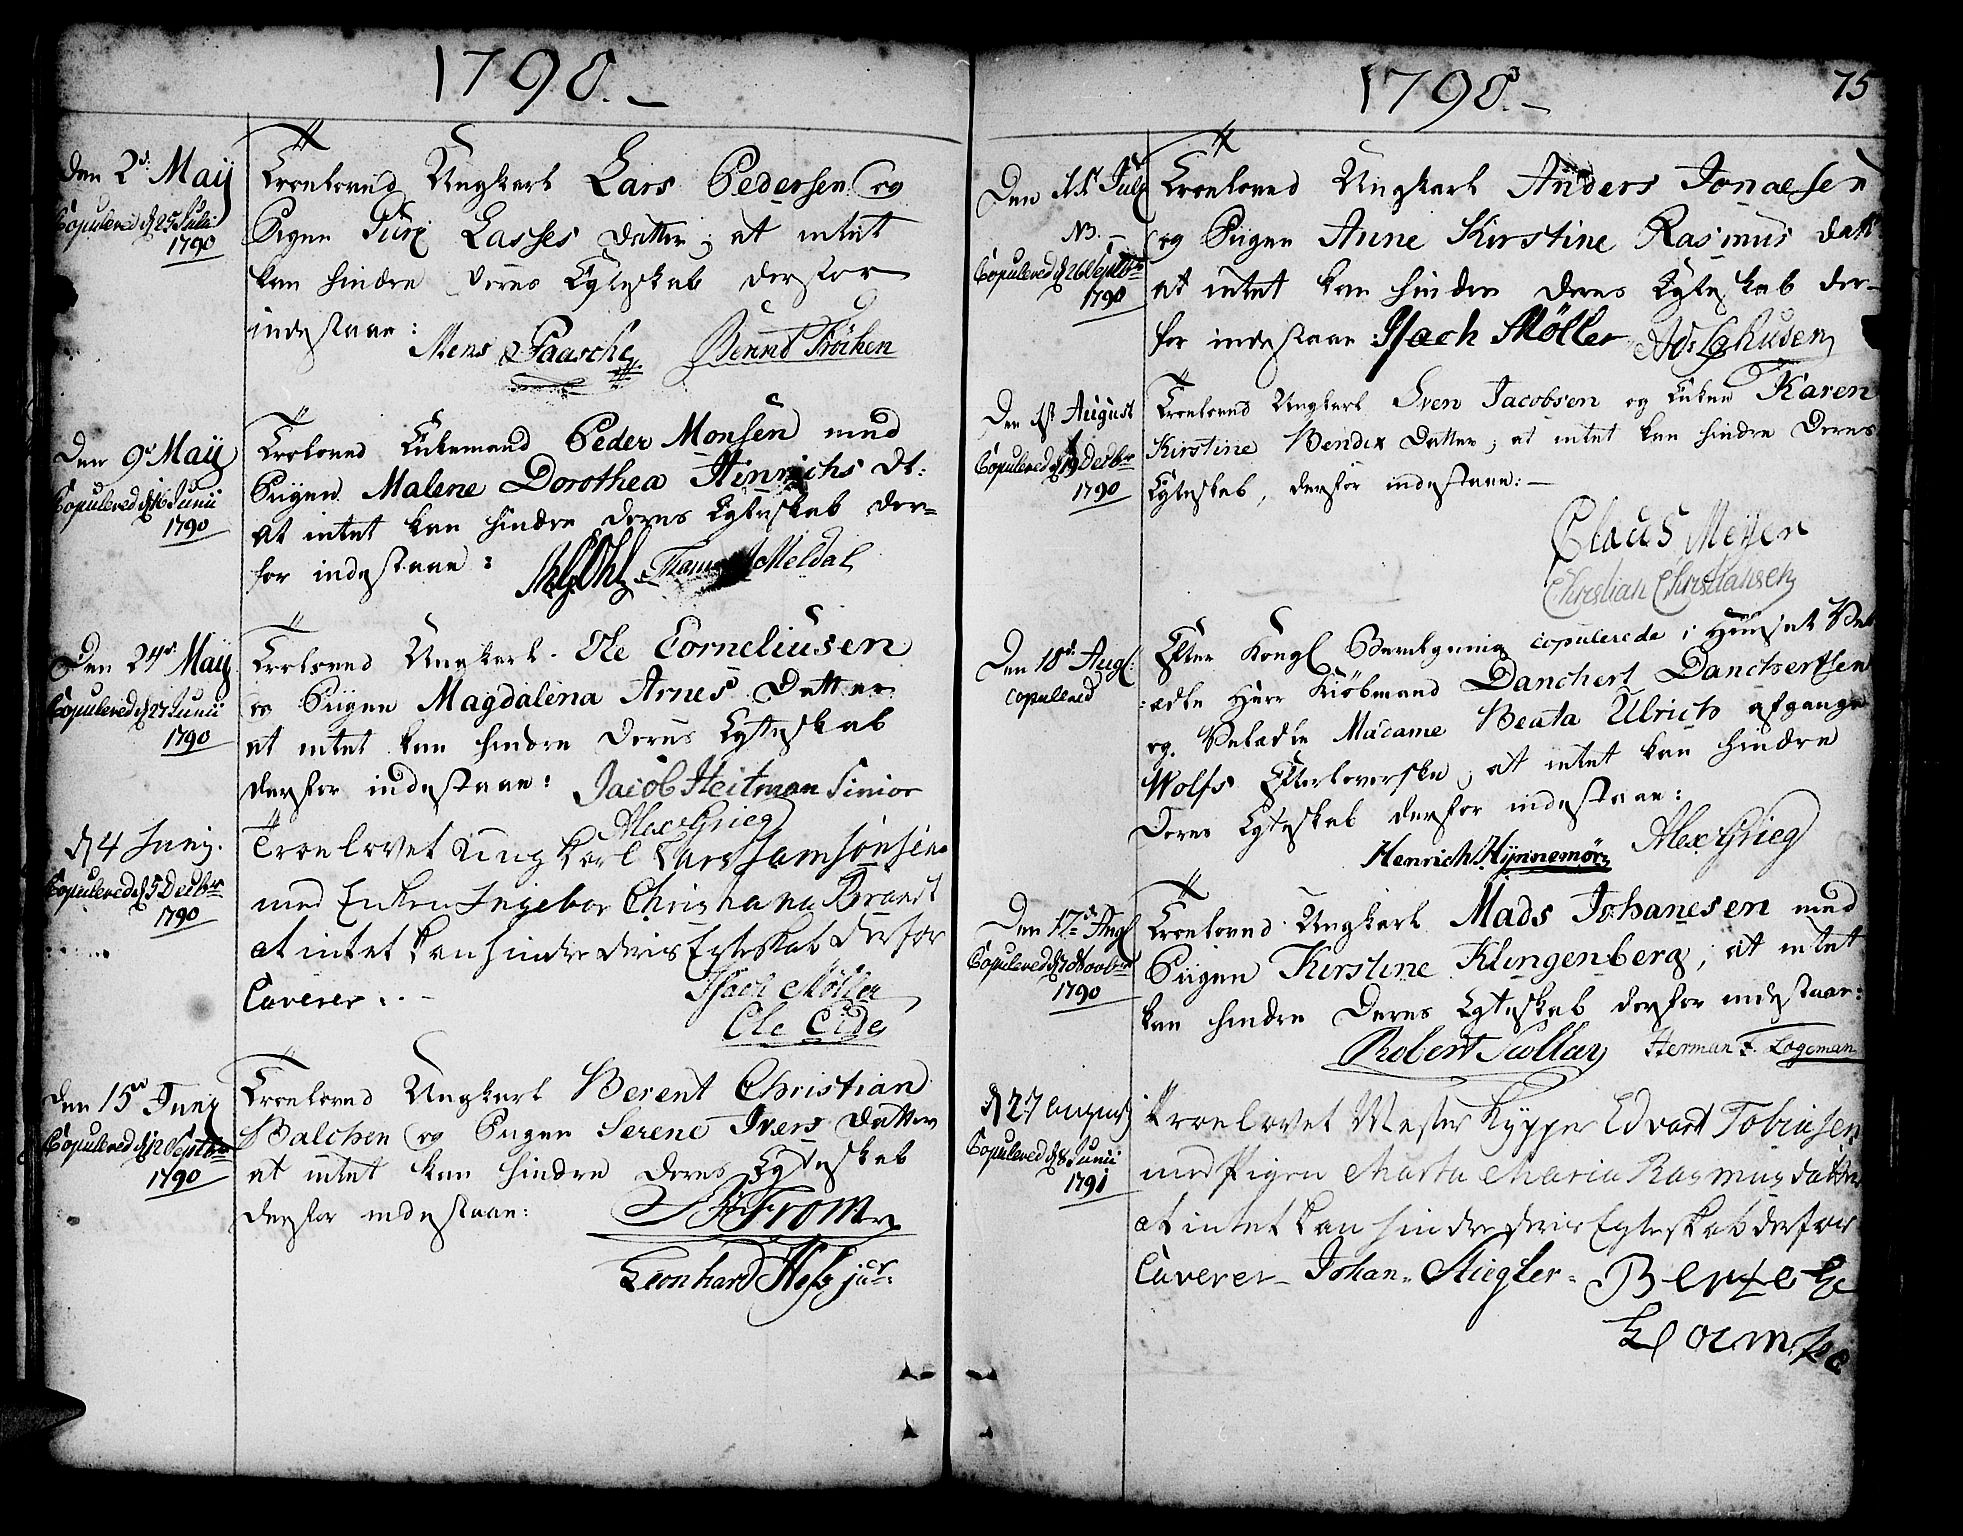 1790.
Den 2d. Maij
Copulered d 25 Julii
1790
Troeloved Ungkarl Lars Pedersen og
Pigen Lasses Datter; at intet
kan hindre deres Egteskab derfor
indestaae:
Mens Paasche Bernt Fröchen
Den 9d Maij
Copulered d 16 Junii
1790
Troeloved Enkemand Peder Monsen med
Pigen Malene Dorothea Hinrichs Dt:
at intet kan hindre deres Egteskab der=
for indestaae:
Meldal
Den 24de Maij
Copulered d 27 Junii
1790
Troeloved Ungkarl Ole Corneliusen
og Pigen Magdalena Arnes Datter
at intet kan hindre deres Egteskab
derfor indestaae: Jacob Heitman Sinior
Alex Grieg
d 4 Junij.
Copulered d 5 Decbr
1790
Troelovet Ungkarl Lars Samsonsen
med Enken Ingebor Christiana Brandt
at intet kan hindre deris Egteskab derfor
Caverer. -
Isach Möller
Ole Eide
Den 15de Junij
Copulered d 12 Septbr
1790
Troeloved Ungkarl Berent Christian
Balchen og Pigen Serene Ivers Datter
at intet kan hindre deres Egteskab
derfor indestaae:
From
Leonhard Hess junr:
1790.
75
Den Julij
NB.
Copulered d 26 Septbr
1790
Troeloved Ungkarl Anders Jonaesen
og Pigen Anne Kirstine Rasmus datt
at intet kan hindre deres Egteskab der-
for indestaae Isach Möller
Den 1st August
Copulered d 19 Decbr
1790
Troeloved Ungkarl Sven Jacobsen og Enken Karen
Kirstine Bendix Datter; at intet kan hindre deres
Egteskab, derfor indestaae:-
Claus Meyer
Christian Christiansen
Den 10d Augl:
copulered
Efter Kongl Bevilgning copulerede i Huuset Vel
ædle Herr Kiöbmand Danchert Danchertsen
og Velædle Madame Beata Ulrich afgangne
Wolfs Efterleverske, at intet kan hindre
Deres Egteskab derfor indestaae:
Henrich Hynnemör Alex Grieg
Den 17d Augl
Copulered d 7 Novbr
1790
Troeloved Ungkarl Mads Johanesen med
Pigen Kirstine Klingenberg; at intet
kan hindre Deres Egteskab derfor indestaae:
Robert Sollay Herman F. Logeman
d 27 August
Copulered d 8 Junii
1791
Troelovet Mester Kypper Edvart Tobiasen
med Pigen Marta Maria Rasmus datter
at intet kan hindre deris Egteskab derfor
Caverer - Johan Stiegler